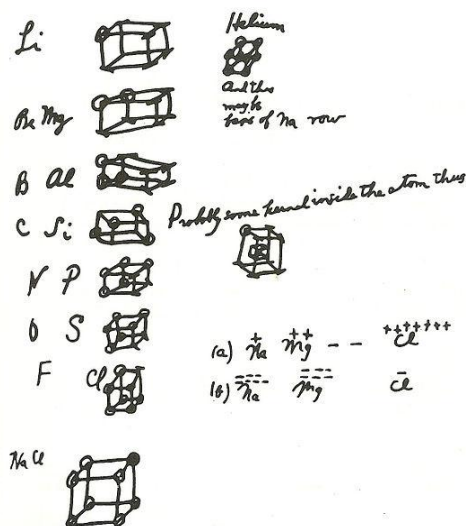 Li
Helium
And this
may be
basis of Na row
Be Mg
B Al
Probably some kernel inside the atom thus
C Si
N P
O S
(a) + Na ++ Mg - - +++++++ Cl
F Cl
(b) Na Mg - Cl
Na Cl